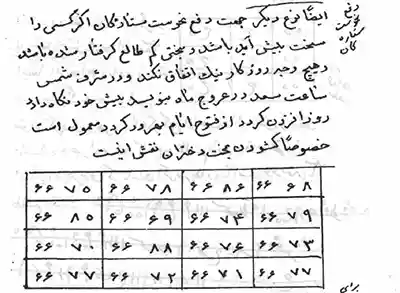 ایضاً نوع دیگر جهت دفع نحوست ستارگان اگر کسی را
سخت پیش آمد باشد و بختی کم طالع گرفتار شده باشد
و هیچ وجه روزگار نیک اتفاق نکند و در شرف شمس
ساعت سعد در عروج ماه بنویسد پیش خود نگاه دارد
روز افزون گردد از فتوح ایام بهره ور گردد معمول است
خصوصاً گشودن بخت دختران نقش اینست
دفع
نحوست
ستاره
گان
۶۶ ۷۵ ۶۶ ۷۸ ۶۶ ۸۶ ۶۶ ۶۸
۶۶ ۸۵ ۶۶ ۶۹ ۶۶ ۷۴ ۶۶ ۷۹
۶۶ ۷۰ ۶۶ ۸۸ ۶۶ ۷۶ ۶۶ ۷۳
۶۶ ۷۷ ۶۶ ۷۲ ۶۶ ۷۱ ۶۶ ۷۷
برای